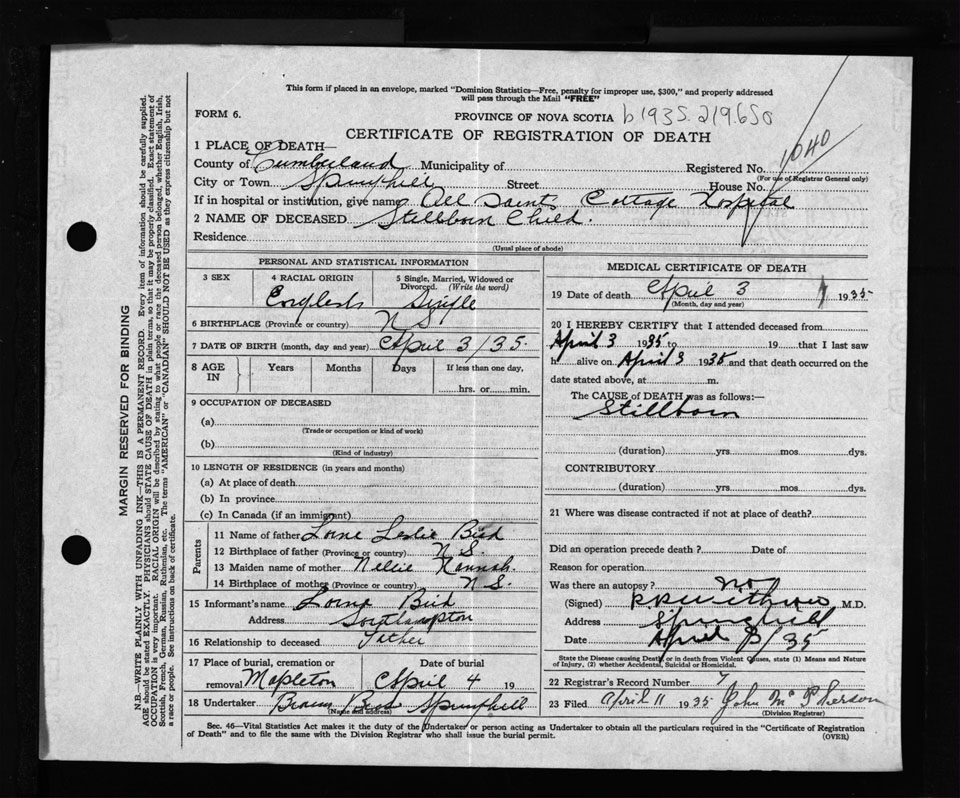 This form if placed in an envelope, marked "Dominion Statistics—Free, penalty for improper use, $300," and properly addressed
will pass through the Mail "FREE"
FORM 6.
PROVINCE OF NOVA SCOTIA b 1935. 219.650
CERTIFICATE OF REGISTRATION OF DEATH
1 PLACE OF DEATH—
1040
County of Cumberland Municipality of Registered No.
(For use of Registrar General only)
City or Town Springhill Street House No.
If in hospital or institution, give name All Saints Cottage Hospital
2 NAME OF DECEASED Stillborn Child.
Residence
(Usual place of abode)
PERSONAL AND STATISTICAL INFORMATION
3 SEX 4 RACIAL ORIGIN 5 Single, Married, Widowed or
Divorced. (Write the word)
English Single
6 BIRTHPLACE (Province or country) N S
7 DATE OF BIRTH (month, day and year) April 3/35.
8 AGE IN Years Months Days If less than one day,
hrs. or min.
9 OCCUPATION OF DECEASED
(a)
(Trade or occupation or kind of work)
(b)
(Kind of industry)
10 LENGTH OF RESIDENCE (in years and months)
(a) At place of death
(b) In province
(c) In Canada (if an immigrant)
Parents
11 Name of father Lorne Leslie Bird
12 Birthplace of father (Province or country) N S.
13 Maiden name of mother Nellie Hannah.
14 Birthplace of mother (Province or country) N S.
15 Informant's name Lorne Bird
Address Southampton
16 Relationship to deceased Father
17 Place of burial, cremation or Date of burial
removal Mapleton April 4 19
18 Undertaker Brown Springhill
(Name and address)
MEDICAL CERTIFICATE OF DEATH
19 Date of death April 3 1935
(Month, day and year)
20 I HEREBY CERTIFY that I attended deceased from
April 3 1935 to 19 that I last saw
h alive on April 3 1935 and that death occurred on the
date stated above, at m.
The CAUSE of DEATH was as follows:—
Stillborn
(duration) yrs mos dys.
CONTRIBUTORY
(duration) yrs mos dys.
21 Where was disease contracted if not at place of death?
Did an operation precede death? Date of
Reason for operation
Was there an autopsy? no
(Signed) M.D.
Address Springhill
Date April 3/35
State the Disease causing Death, or in death from Violent Causes, state (1) Means and Nature
of Injury, (2) whether Accidental, Suicidal or Homicidal.
22 Registrar's Record Number 7
23 Filed April 11 1935 John McPherson
(Division Registrar)
Sec. 46—Vital Statistics Act makes it the duty of the Undertaker or person acting as Undertaker to obtain all the particulars required in the "Certificate of Registration
of Death" and to file the same with the Division Registrar who shall issue the burial permit.
(OVER)
MARGIN RESERVED FOR BINDING
N.B.—WRITE PLAINLY WITH UNFADING INK—THIS IS A PERMANENT RECORD. Every item of information should be carefully supplied.
AGE should be stated EXACTLY. PHYSICIANS should STATE CAUSE OF DEATH in plain terms, so that it may be properly classified. Exact statement of
OCCUPATION is very important. RACIAL ORIGIN will be described by stating to what people or race the deceased person belonged, whether English, Irish,
Scottish, French, German, Russian, Ruthenian, etc. The terms "AMERICAN" or "CANADIAN" SHOULD NOT BE USED as they express citizenship but not
a race or people. See instructions on back of certificate.